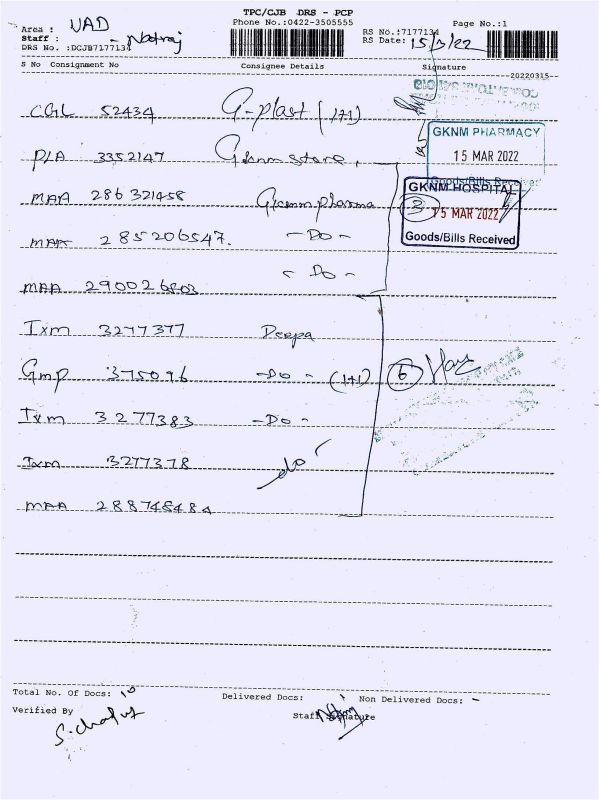 TPC/CJB DRS - PCP
Phone No.:0422-3505555
Page No.:1
Area : VAD
Staff : - Natraj
DRS No. :DCJB7177134
RS No.:7177134
RS Date: 15/3/22
S No Consignment No Consignee Details Signature
20220315--
CGL 52434 G-plast (1+1)
GKNM PHARMACY
15 MAR 2022
Goods/Bills Receive
PLA 3352147 Gknm store,
GKNM HOSPITAL
15 MAR 2022
Goods/Bills Received
3
MAA 286321458 Gknm pharma
MAA 285206547. - Do -
MAA 290026803 - Do -
Ixm 3277377 Deepa
Gmp 375096 - Do - (1+1) 6
Ixm 3277383 - Do -
Ixm 3277378 do
MAA 288745484
Total No. Of Docs: 10
Delivered Docs:
Non Delivered Docs: -
Verified By
Staff Signature